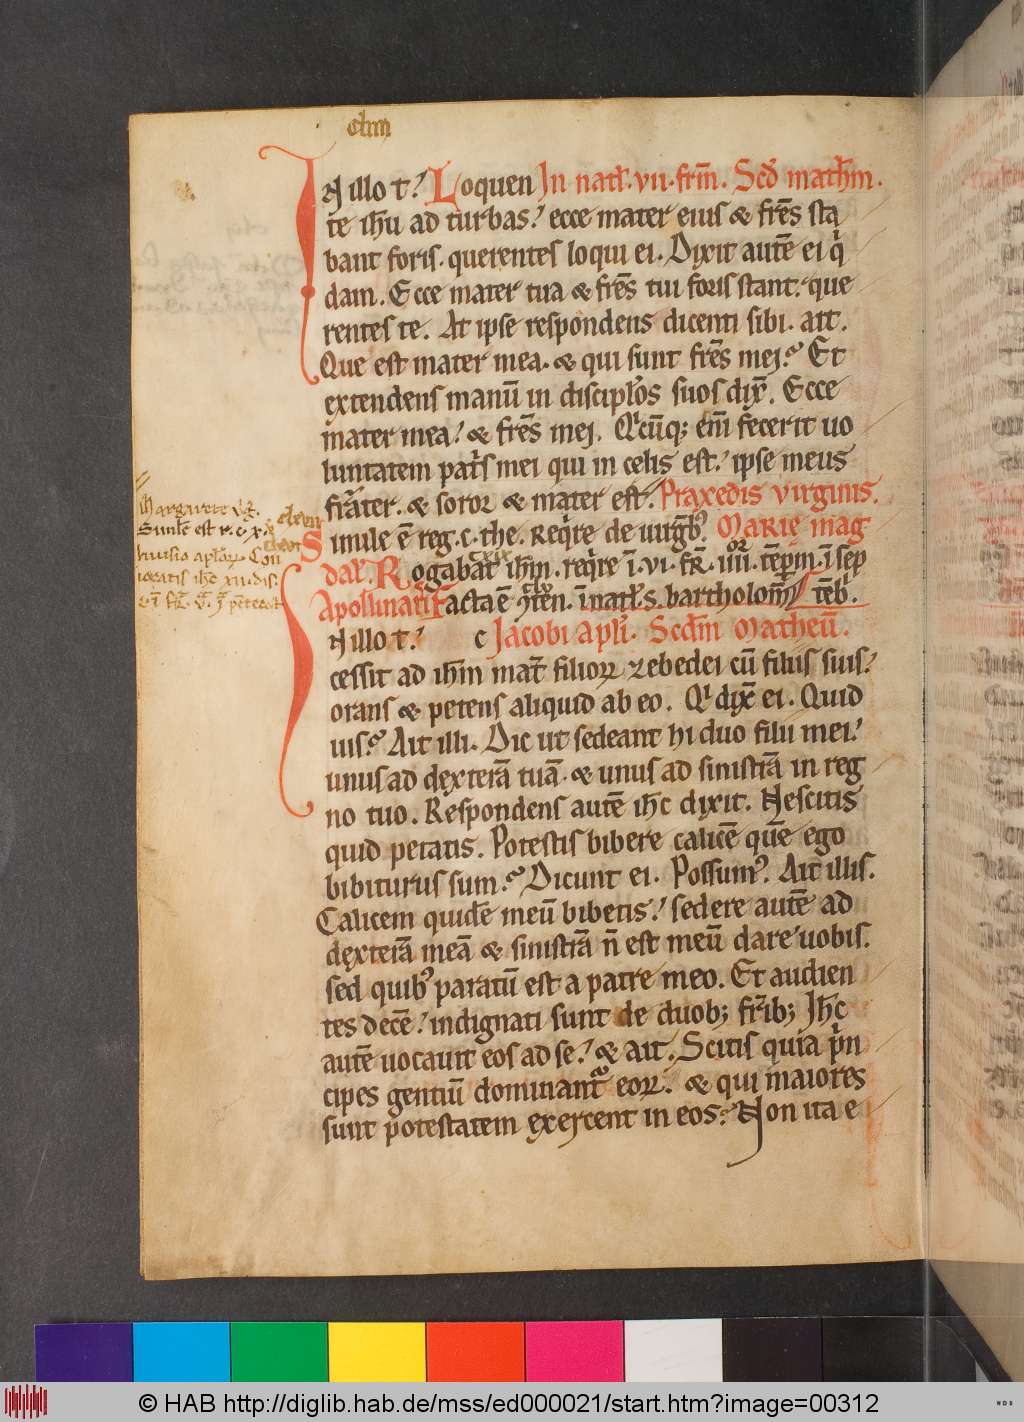 clviii
In illo t̄. Loquen In natł. vii. fr̄m. Scd̄ mathm̄.
te ihū ad turbas. ecce mater eius & fr̄es sta
bant foris. querentes loqui ei. Dixit autē ei q̇
dam. Ecce mater tua & fr̄es tui foris stant. que
rentes te. At ipse respondens dicenti sibi. ait.
Que est mater mea. & qui sunt fr̄es mei? Et
extendens manū in discipłos suos dix̄. Ecce
mater mea. & fr̄es mei. Qi̇cūq; eni̅ fecerit uo
luntatem pat̄s mei qui in celis est. ipse meus
frater. & soror & mater est. Praxedis virginis.
Simile ē reg. c. the. Reqͥre de uirgͥbꝰ. Marię mag
dał. Rogabat ihm̄. reqͥre ī. vi. fr̄. iiii. tēpm̄. ī sep
Apollinaris Facta ē ꝯtēn. ī natł. s. bartholom̄ tēb̄.
In illo t̄. c Jacobi apłi. Scd̄m Matheū.
cessit ad ihm̄ mat̄ filioꝝ zebedei cū filiis suis.
orans & petens aliquid ab eo. Qͥ dix̄ ei. Quid
uis? Ait illi. Dic ut sedeant hi duo filii mei.
unus ad dexterā tuā. & unus ad sinistrā in reg
no tuo. Respondens autē ihc̄ dixit. Nescitis
quid petatis. Potestis bibere calicē quē ego
bibiturus sum? Dicunt ei. Possumꝰ. Ait illis.
Calicem quidē meū bibetis. sedere autē ad
dexterā meā & sinistrā n̄ est meū dare uobis.
sed quibꝰ paratū est a patre meo. Et audien
tes decē. indignati sunt de duob; fr̄ib; Ihc̄
autē uocauit eos ad se. & ait. Scitis quia pͥn
cipes gentiū dominant᷑ eoꝝ. & qui maiores
sunt potestatem exercent in eos. Non ita e
Margarete v̄g.
Simłe est r. c. x.
© HAB http://diglib.hab.de/mss/ed000021/start.htm?image=00312